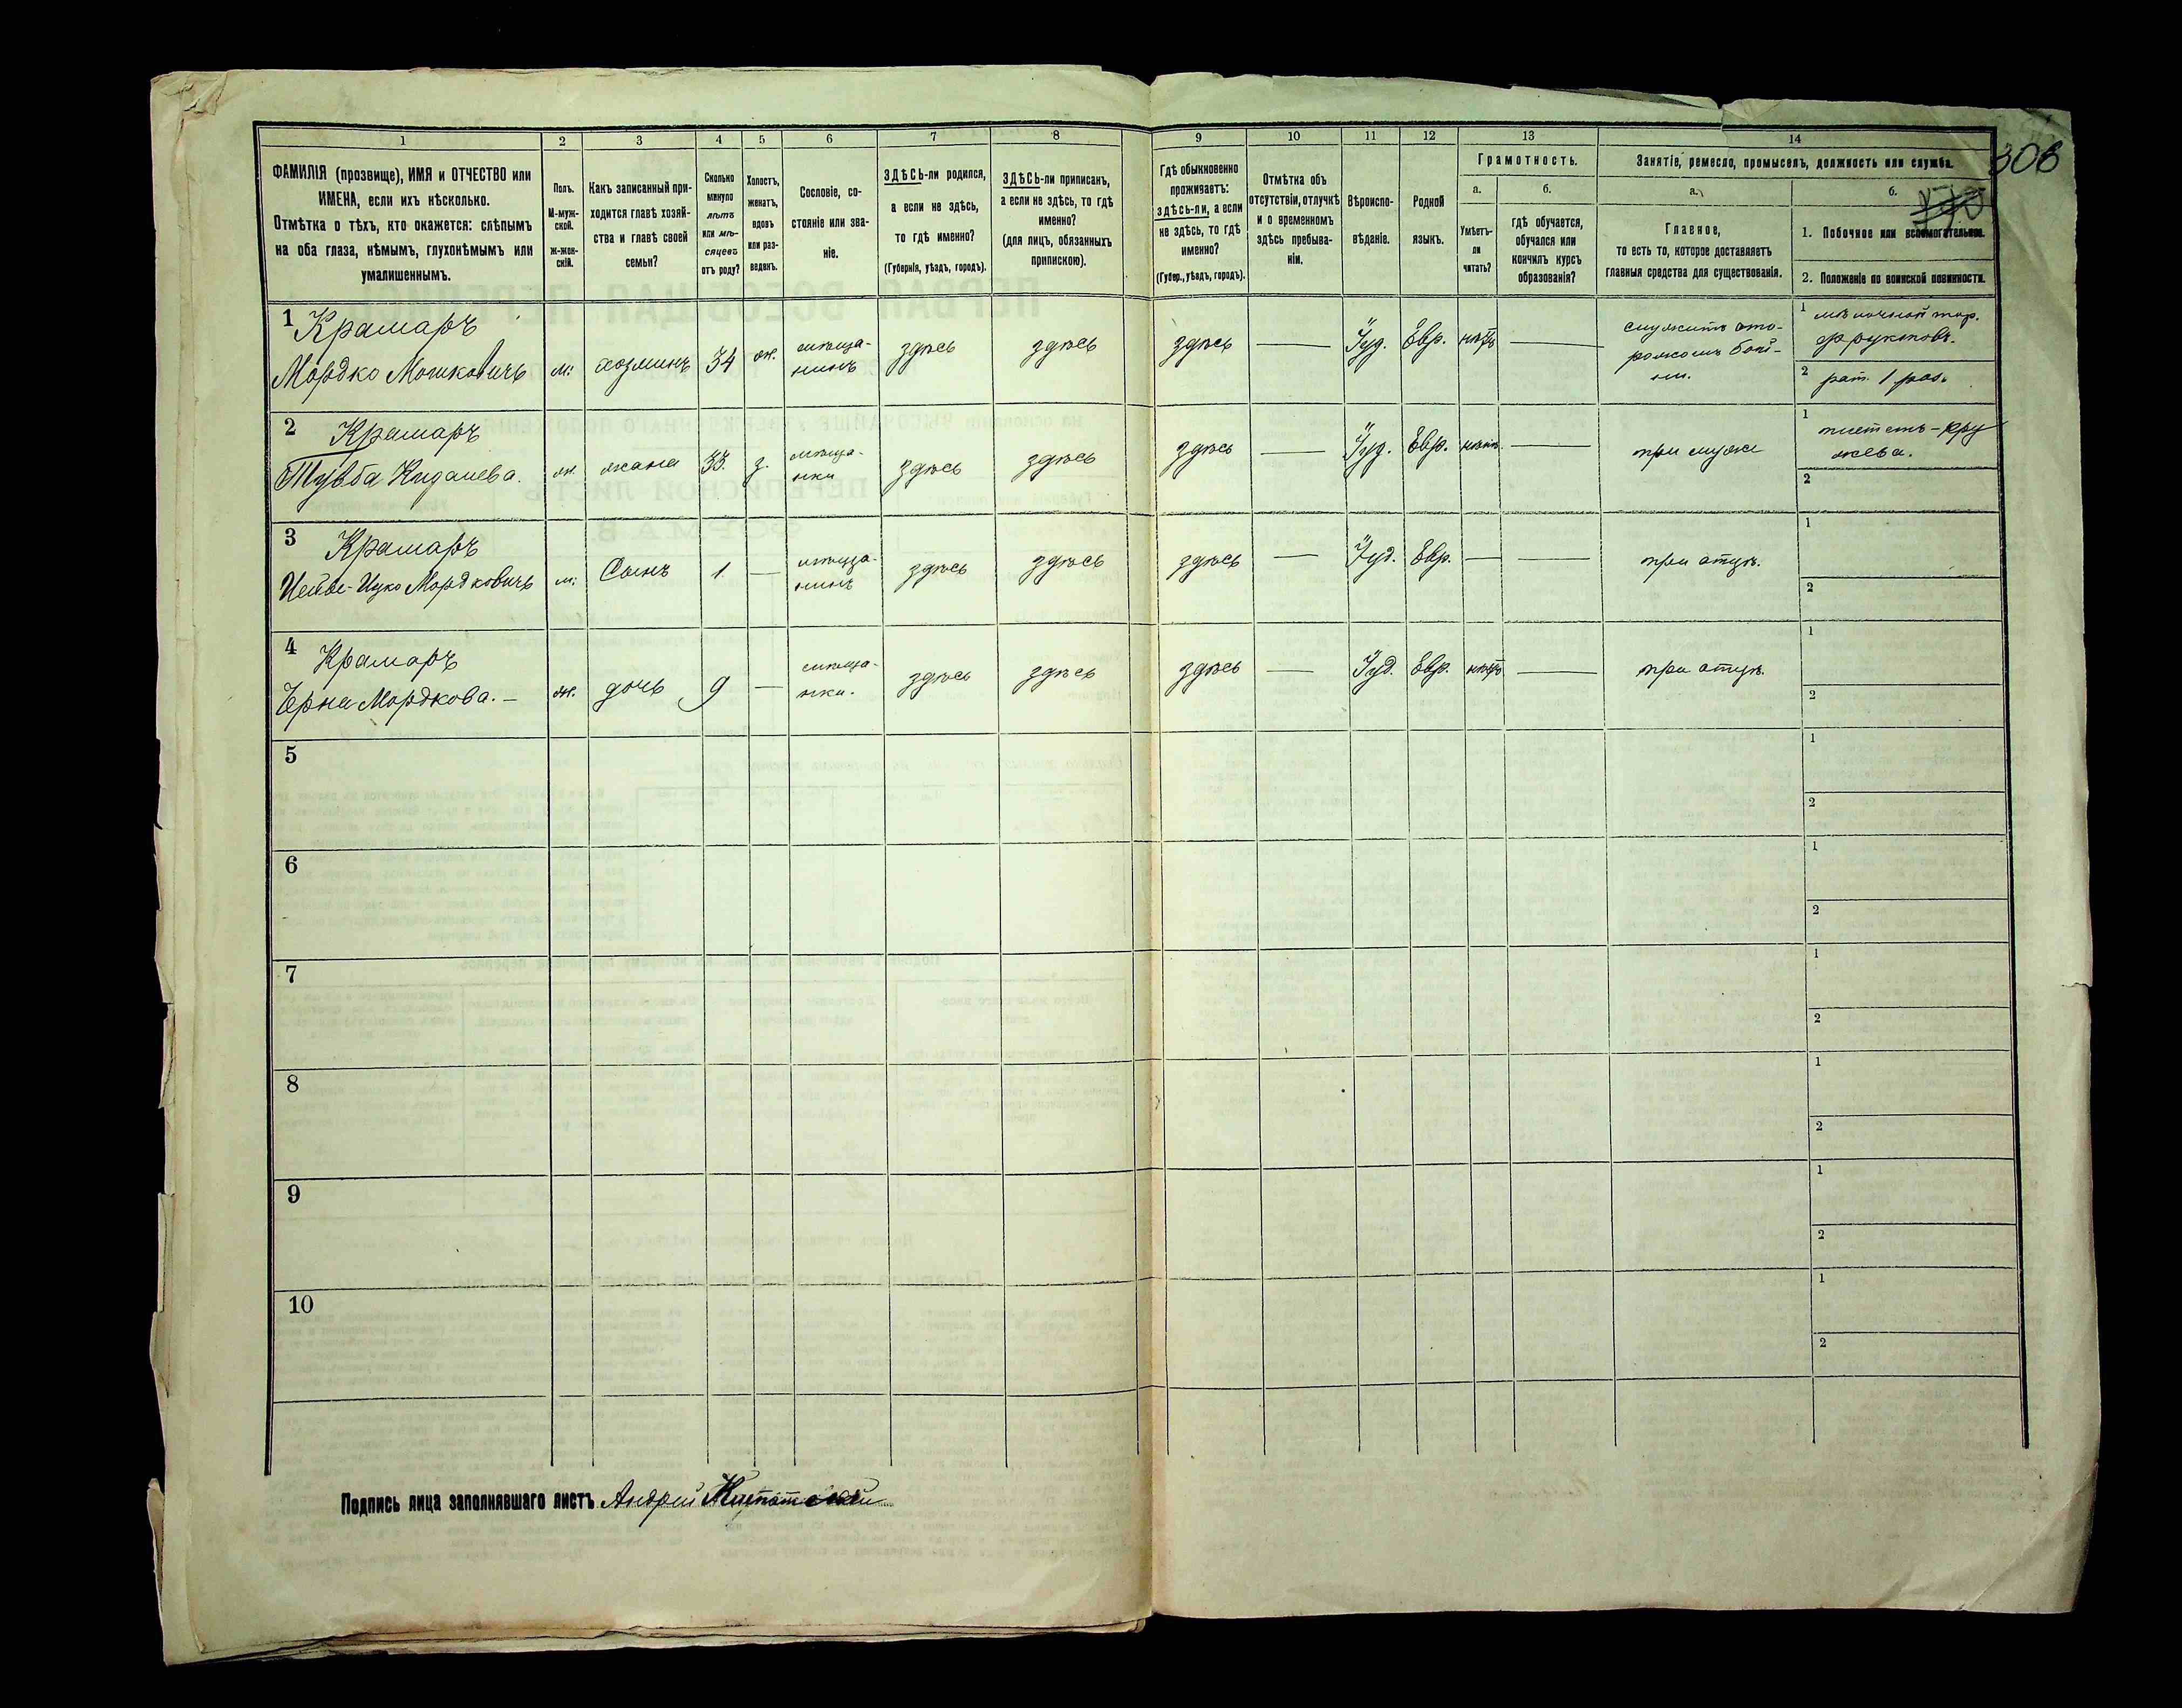 1 2 3 4 5 6 7 8 9 10 11 12 13 14
ФАМИЛІЯ (прозвище), ИМЯ и ОТЧЕСТВО или
ИМЕНА, если ихъ нѣсколько.
Отмѣтка о тѣхъ, кто окажется: слѣпымъ
на оба глаза, нѣмымъ, глухонѣмымъ или
умалишеннымъ.
Полъ.
М-муж-
ской.
ж-жен-
скій.
Какъ записанный при-
ходится главѣ хозяй-
ства и главѣ своей
семьи?
Сколько
минуло
лѣтъ
или мѣ-
сяцевъ
отъ роду?
Холостъ,
женатъ,
вдовъ
или раз-
веденъ.
Сословіе, со-
стояніе или зва-
ніе.
ЗДѢСЬ-ли родился,
а если не здѣсь,
то гдѣ именно?
(Губернія, уѣздъ, городъ).
ЗДѢСЬ-ли приписанъ,
а если не здѣсь, то гдѣ
именно?
(для лицъ, обязанныхъ
припискою).
Гдѣ обыкновенно
проживаетъ:
здѣсь-ли, а если
не здѣсь, то гдѣ
именно?
(Губер., уѣздъ, городъ).
Отмѣтка объ
отсутствіи, отлучкѣ
и о временномъ
здѣсь пребыва-
ніи.
Вѣроиспо-
вѣданіе.
Родной
языкъ.
Грамотность.
а.
Умѣетъ-
ли
читать?
б.
гдѣ обучается,
обучался или
кончилъ курсъ
образованія?
Занятіе, ремесло, промыселъ, должность или служба.
а.
Главное,
то есть то, которое доставляетъ
главныя средства для существованія.
б.
1. Побочное или вспомогательное.
2. Положеніе по воинской повинности.
306
1 Крамаръ
Мордко Мошковичъ
м:
хозяинъ
34
ж.
мѣща-
нинъ
здѣсь
здѣсь
здѣсь
—
Іуд.
Евр.
нѣтъ
—
служитъ сто-
рожомъ бой-
ни.
1 мѣлочной тор.
фруктовъ.
2 рат. 1 раз.
2 Крамаръ
Тувба
ж.
жена
33.
з.
мѣща-
нка
здѣсь
здѣсь
здѣсь
—
Іуд.
Евр.
нѣтъ
—
при мужѣ
1 плететъ-кру
жева.
2
3 Крамаръ
Ицко Мордковичъ
м:
Сынъ
1.
—
мѣща-
нинъ
здѣсь
здѣсь
здѣсь
—
Іуд.
Евр.
—
—
при отцѣ.
1
2
4 Крамаръ
Черна Мордкова. —
ж.
дочь
9
—
мѣща-
нка.
здѣсь
здѣсь
здѣсь
—
Іуд.
Евр.
нѣтъ
—
при отцѣ.
1
2
5
1
2
6
1
2
7
1
2
8
1
2
9
1
2
10
1
2
Подпись лица заполнявшаго листъ Андрей